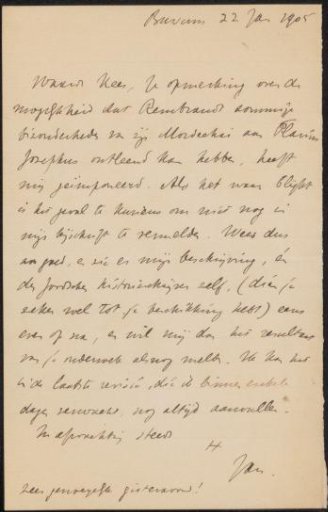 Bussum 22 Jan 1905
Waarde Kees, Je opmerking over de
mogelijkheid dat Rembrandt sommige
bizonderheden van zijn Mordechai aan Flavius
Josephus ontleend kan hebben, heeft
mij geïmponeerd. Als het waar blijkt
is het geval te kurieus om niet nog in
mijn bijschrift te vermelden. Wees dus
zoo goed, en sla en mijn beschrijving, én
de joodsche historieschrijver zelf, (dien je
zeker wel tot je beschikking hebt) eens
even op na, en wil mij dan het resultaat
van je onderzoek alsnog melden. Ik kan het
in de laatste revisie, die ik binnen enkele
dagen verwacht, nog altijd aanvullen.
In afwachting steeds
Jan.
zeer genoegelijk gisteravond!